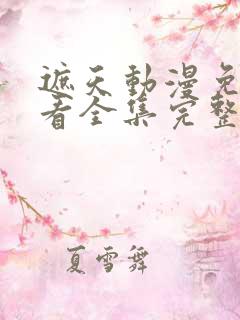 遮天動漫免
看全集完整
夏雪舞